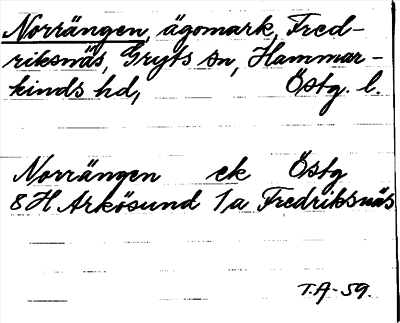 Norrängen, ägomark, Fred-
riksnäs, Gryts sn, Hammar-
kinds hd, Östg. l.
Norrängen ek Östg
8H Arkösund 1a Fredriksnäs
T.A-59.